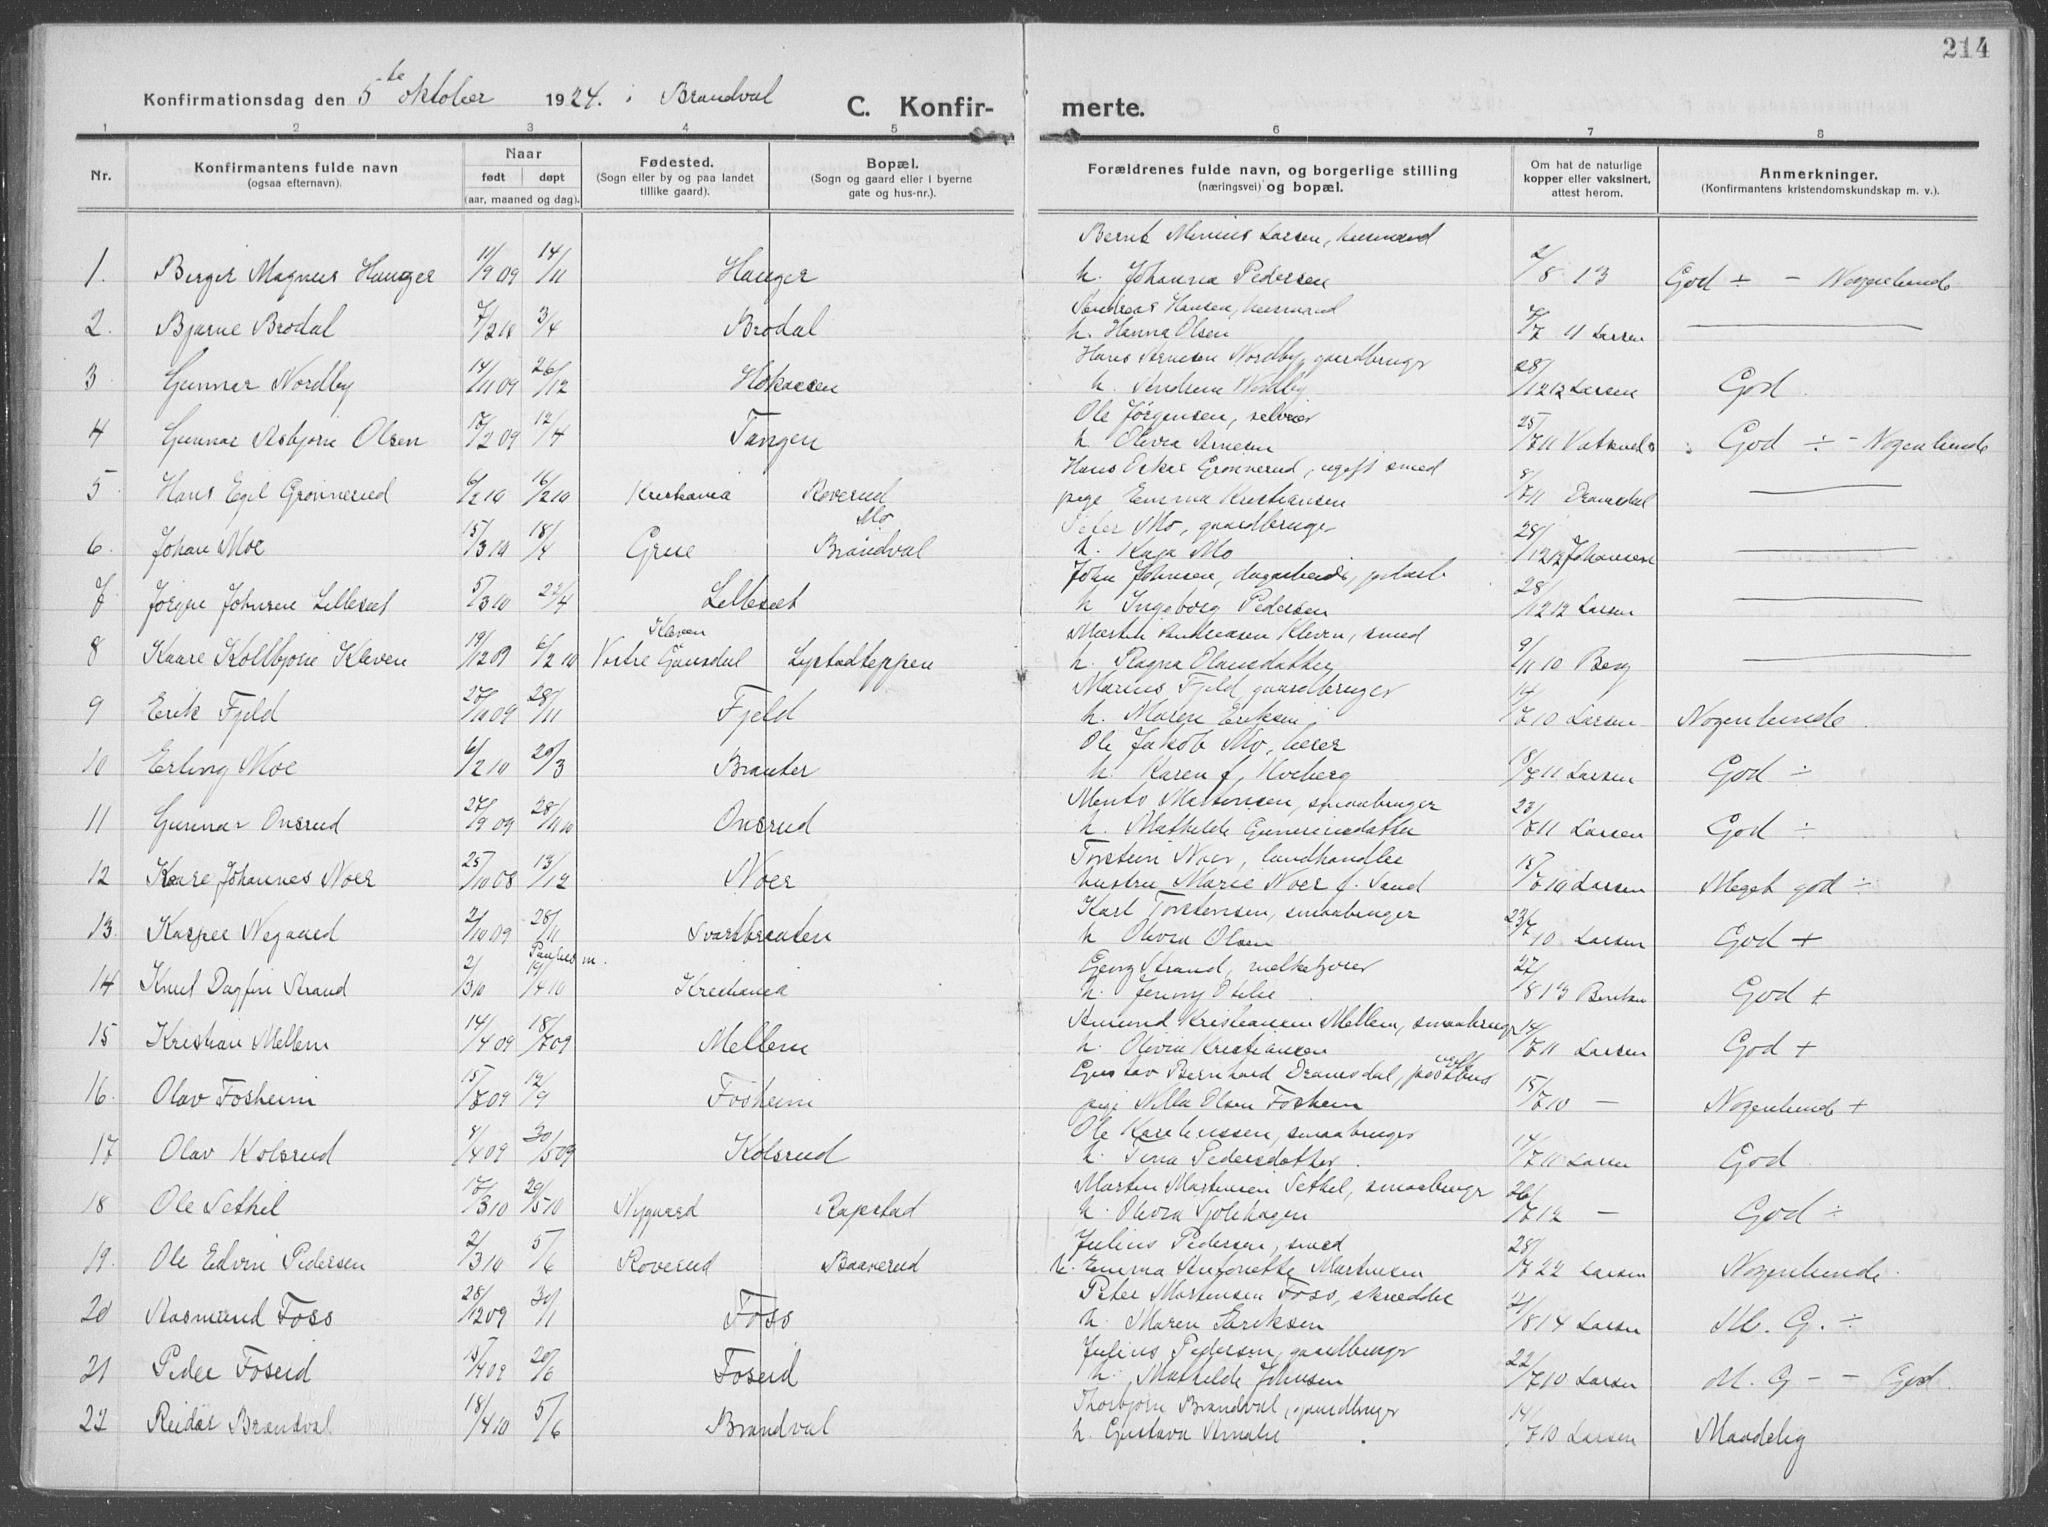 214
Konfirmationsdag den 5te oktober 1924. i Brandval C. Konfir- merte.
1 2 3 4 5 6 7 8
Nr. Konfirmantens fulde navn (ogsaa efternavn). Naar født døpt (aar, maaned og dag). Fødested. (Sogn eller by og paa landet tillike gaard). Bopæl. (Sogn og gaard eller i byerne gate og hus-nr.). Forældrenes fulde navn, og borgerlige stilling (næringsvei) og bopæl. Om hat de naturlige kopper eller vaksinert, attest herom. Anmerkninger. (Konfirmantens kristendomskundskap m. v.).
Bernt Larsen, husmand
1. Birger Magnus Hanger 11/9 09 14/11 Hanger h. Johanna Pedersen 2/8 13 God ÷ - Nogenlunde
Andreas Hansen, husmand
2. Bjarne Brodal 7/2 10 3/4 Brodal h. Hanna Olsen 7/7 11 Larsen
Hans Arnesen Nordby, gaardbruger
3 Gunnar Nordby 14/11 09 26/12 Hokaasen h. Nordby 28/12 12 Larsen God.
Ole Jörgensen, selveier
4 Gunnar Asbjörn Olsen 17/2 09 12/4 Tangen h. Olivia Arnesen 25/7 11 God ÷ - Nogenlunde
Hans Oskar Grönnerud, ugift smed
5 Hans Egil Grönnerud 6/2 10 16/2 10 Kristiania Roverud pige Emma Kristiansen 8/7 11 Dramsdal
Mo Peter Mo, gaardbruger
6. Johan Moe 15/3 10 18/4 Grue Brandval h. Kaja Mo 28/12 12 Johansen
John Johnsen, dagarbeider,
7 Jörgen Johnsen Lilleset 5/3 10 22/4 Lilleset h Ingeborg Pedersen 28/12 12 Larsen
Kleven Martin Andreasen Kleven, smed
8 Kaare Kolbjörn Kleven 19/12 09 6/2 10 h. Ragna Olausdatter 9/11 10 Berg
Marius Fjeld, gaardbruger
9 Erik Fjeld 27/10 09 28/11 Fjeld h. Maren Eriksen 14/7 10 Larsen Nogenlunde.
Ole Jakob Mo,
10 Erling Moe 6/2 10 20/3 Brauter h. Karen f. Hveberg 18/7 11 Larsen God ÷
Martinsen, smaabruger
11 Gunnar Onsrud 27/9 09 28/11 10 Onsrud h. Mathilde Guneriusdatter 23/7 11 Larsen God ÷
Torstein Noer, landhandler
12 Kaare Johannes Noer 25/10 08 13/12 Noer hustru Marie Noer f. Sand 15/7 10 Larsen Meget god ÷
Karl Torstensen, smaabruger
13. Kasper Nygaard 2/10 09 28/11 Svartbrauten h Olivia Olsen 23/7 10 Larsen God +
Paulus m. Georg Strand, melkekjorer
14 Knut Dagfin Strand 2/3 10 19/4 10 Kristiania h. Jenny Otilie 27/8 13 Berntsen God +
Amund Kristiansen Mellem, smaabruger
15 Kristian Mellem 14/4 09 18/7 09 Mellem h. Olivia Kristiansen 14/7 11 Larsen God +
Gustav Bernhard Dramsdal,
16. Olav Fosheim 15/7 09 12/9 Fosheim pige Nilla Olsen Foshem 15/7 10 — Nogenlunde +
Ole Karelinssen, smaabruger
17 Olav Kolsrud 8/4 09 30/5 09 Kolsrud h. Tina Pedersdatter. 14/7 11 Larsen God.
Martin Martinsen Sethil, smaabruger
18 Ole Sethil 17/3 10 29/5 10 Nygaard Rapstad h. Olivia Sjölihagen 26/7 12 — God ÷
Julius Pedersen, smed
19. Ole Edvin Pedersen 2/3 10 5/6 Roverud Baaverud h. Emma Antonette Martinsen 28/7 22 Larsen Nogenlunde.
Peter Martinsen Foss, skrædder
20 Rasmund Foss 28/12 09 30/1 Foss h. Maren Eriksen 21/8 14 Larsen M. G. ÷
Julius Pedersen, gaardbruger
21 Peder Foseid 15/4 09 20/6 Foseid h. Mathilde Johnsen 22/7 10 Larsen M. G - - God.
Thorbjörn Brandval, gaardbruger
22 Reidar Brandval 18/4 10 5/6 Brandval h. Gustava Amalie 14/7 10 Larsen Maadelig